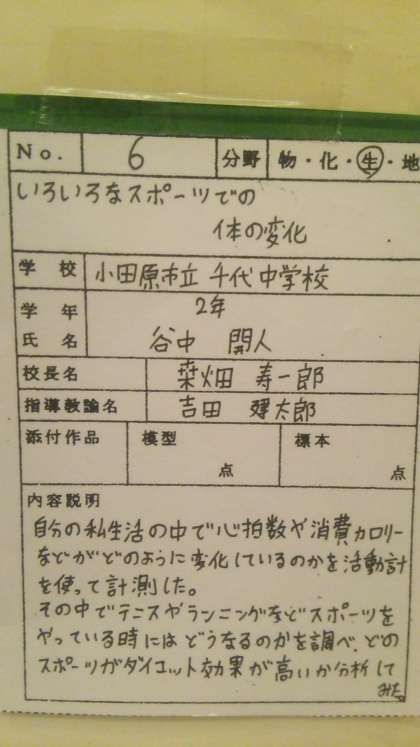 No. 6 分野 物・化・生・地
いろいろなスポーツでの
体の変化
学校 小田原市立 千代中学校
学年 2年
氏名 谷中 開人
校長名 桒畑 寿一郎
指導教諭名 吉田 健太郎
添付作品 模型 点 標本 点
内容説明
自分の私生活の中で心拍数や消費カロリー
などがどのように変化しているのかを活動計
を使って計測した。
その中でテニスやランニングなどスポーツを
やっている時にはどうなるのかを調べ、どの
スポーツがダイエット効果が高いか分析して
みた。